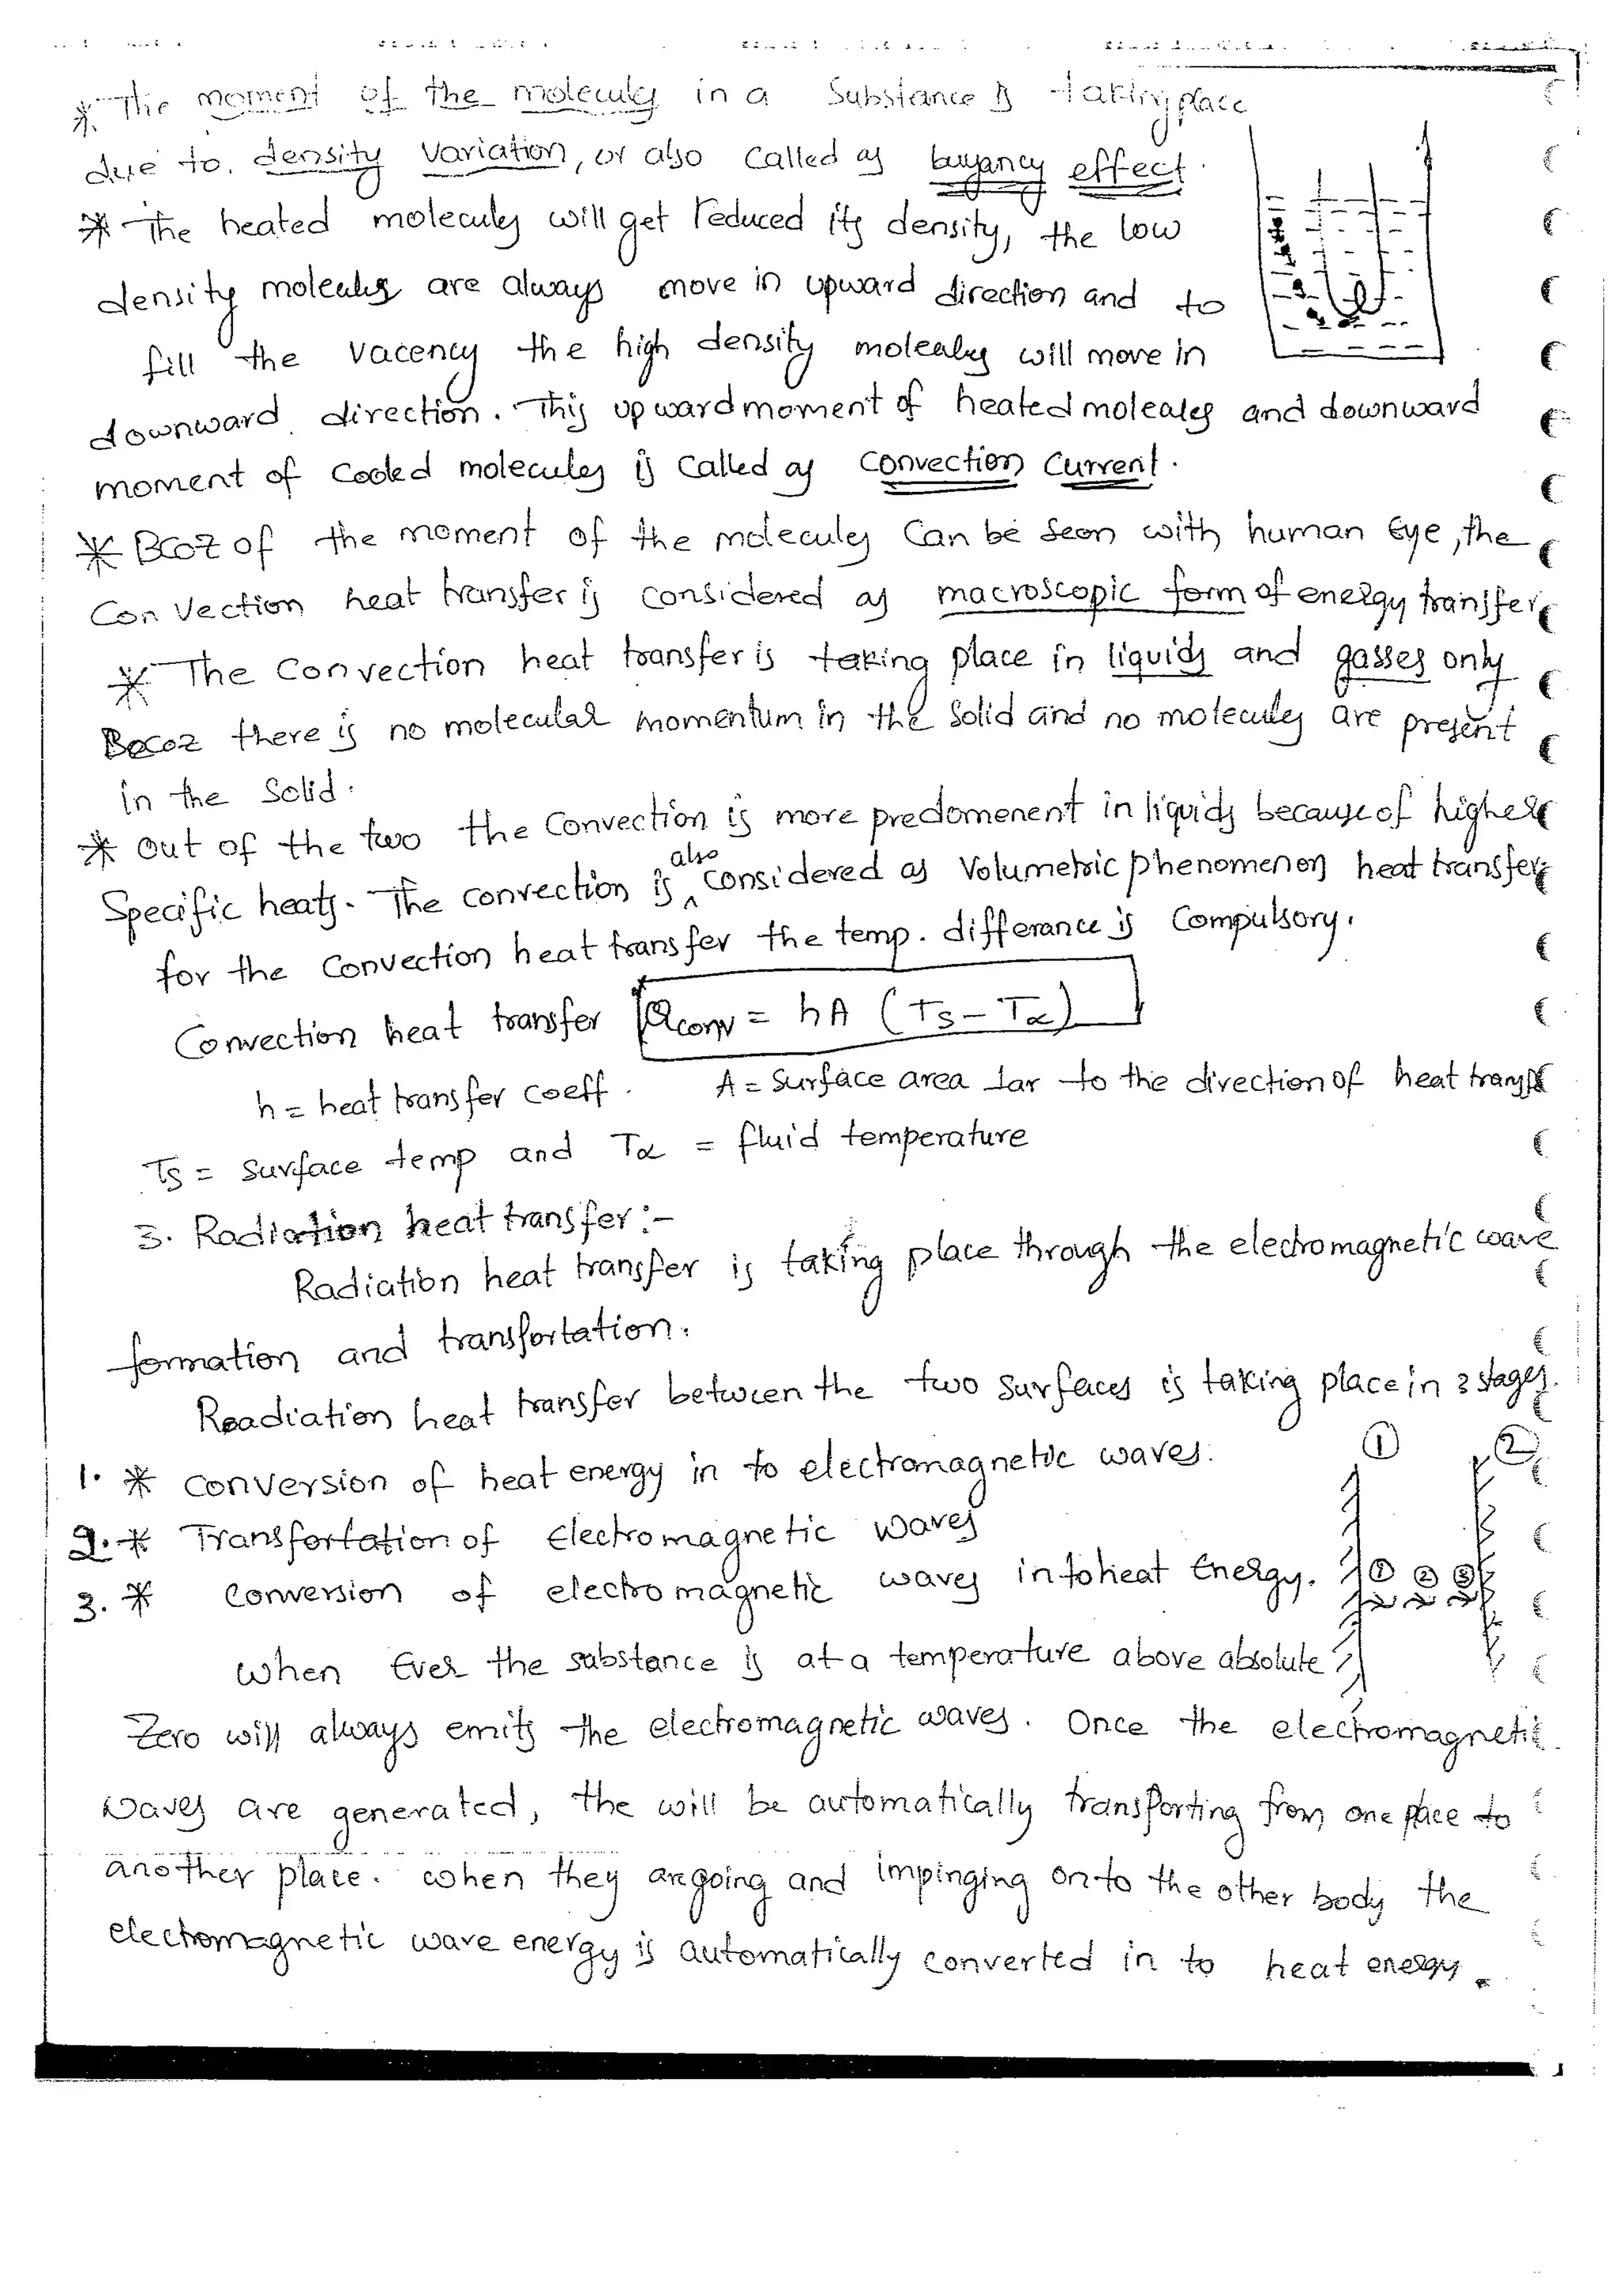 * The moment of the molecules in a Substance is taking place
due to. density variation, or also Called as buyancy effect.
* The heated molecules will get reduced its density, the low
density molecules are always move in upward direction and to
fill the vacency the high density molecules will move in
downward direction. This upward moment of heated molecules and downward
moment of cooled molecules is Called as Convection Current.
* BCoz of the moment of the molecules Can be seen with human Eye, the
Convection heat transfer is considered as macroscopic form of energy transfer
* The Convection heat transfer is taking place in liquids and gasses only
Becoz there is no molecular momentum in the Solid and no molecules are present
in the Solid.
* Out of the two the Convection is more predomenent in liquids because of higher
Specific heats. The convection is also considered as Volumetric phenomenon heat transfer
for the Convection heat transfer the temp. differance is Compulsory.
Convection heat transfer Qconv = hA (Ts - T∝)
h = heat transfer coeff. A = Surface area ⊥ar to the direction of heat transfe
Ts = surface temp and T∝ = fluid temperature
3. Radiation heat transfer :-
Radiation heat transfer is taking place through the electromagnetic wave
formation and transfortation.
Readiation heat transfer between the two surfaces is taking place in 3 stages.
1. * Conversion of heat energy in to electromagnetic waves. ① ②
2. * Transfortation of Electromagnetic waves
3. * Conversion of electromagnetic waves into heat Energy. ① ② ③
When Ever the substance is at a temperature above absolute
Zero will always emits the electromagnetic waves. Once the electromagnetic
waves are generated, the will be automatically transporting from one place to
another place. when they are going and impinging on to the other body the
electromagnetic wave energy is automatically converted in to heat energy.